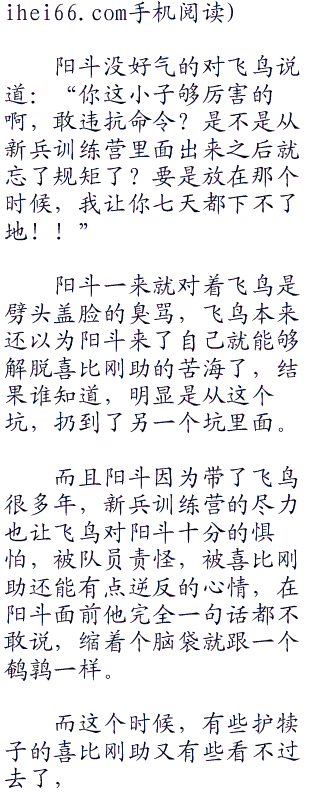 ihei66.com手机阅读)
阳斗没好气的对飞鸟说
道：“你这小子够厉害的
啊，敢违抗命令？是不是从
新兵训练营里面出来之后就
忘了规矩了？要是放在那个
时候，我让你七天都下不了
地！！”
阳斗一来就对着飞鸟是
劈头盖脸的臭骂，飞鸟本来
还以为阳斗来了自己就能够
解脱喜比刚助的苦海了，结
果谁知道，明显是从这个
坑，扔到了另一个坑里面。
而且阳斗因为带了飞鸟
很多年，新兵训练营的尽力
也让飞鸟对阳斗十分的惧
怕，被队员责怪，被喜比刚
助还能有点逆反的心情，在
阳斗面前他完全一句话都不
敢说，缩着个脑袋就跟一个
鹌鹑一样。
而这个时候，有些护犊
子的喜比刚助又有些看不过
去了，